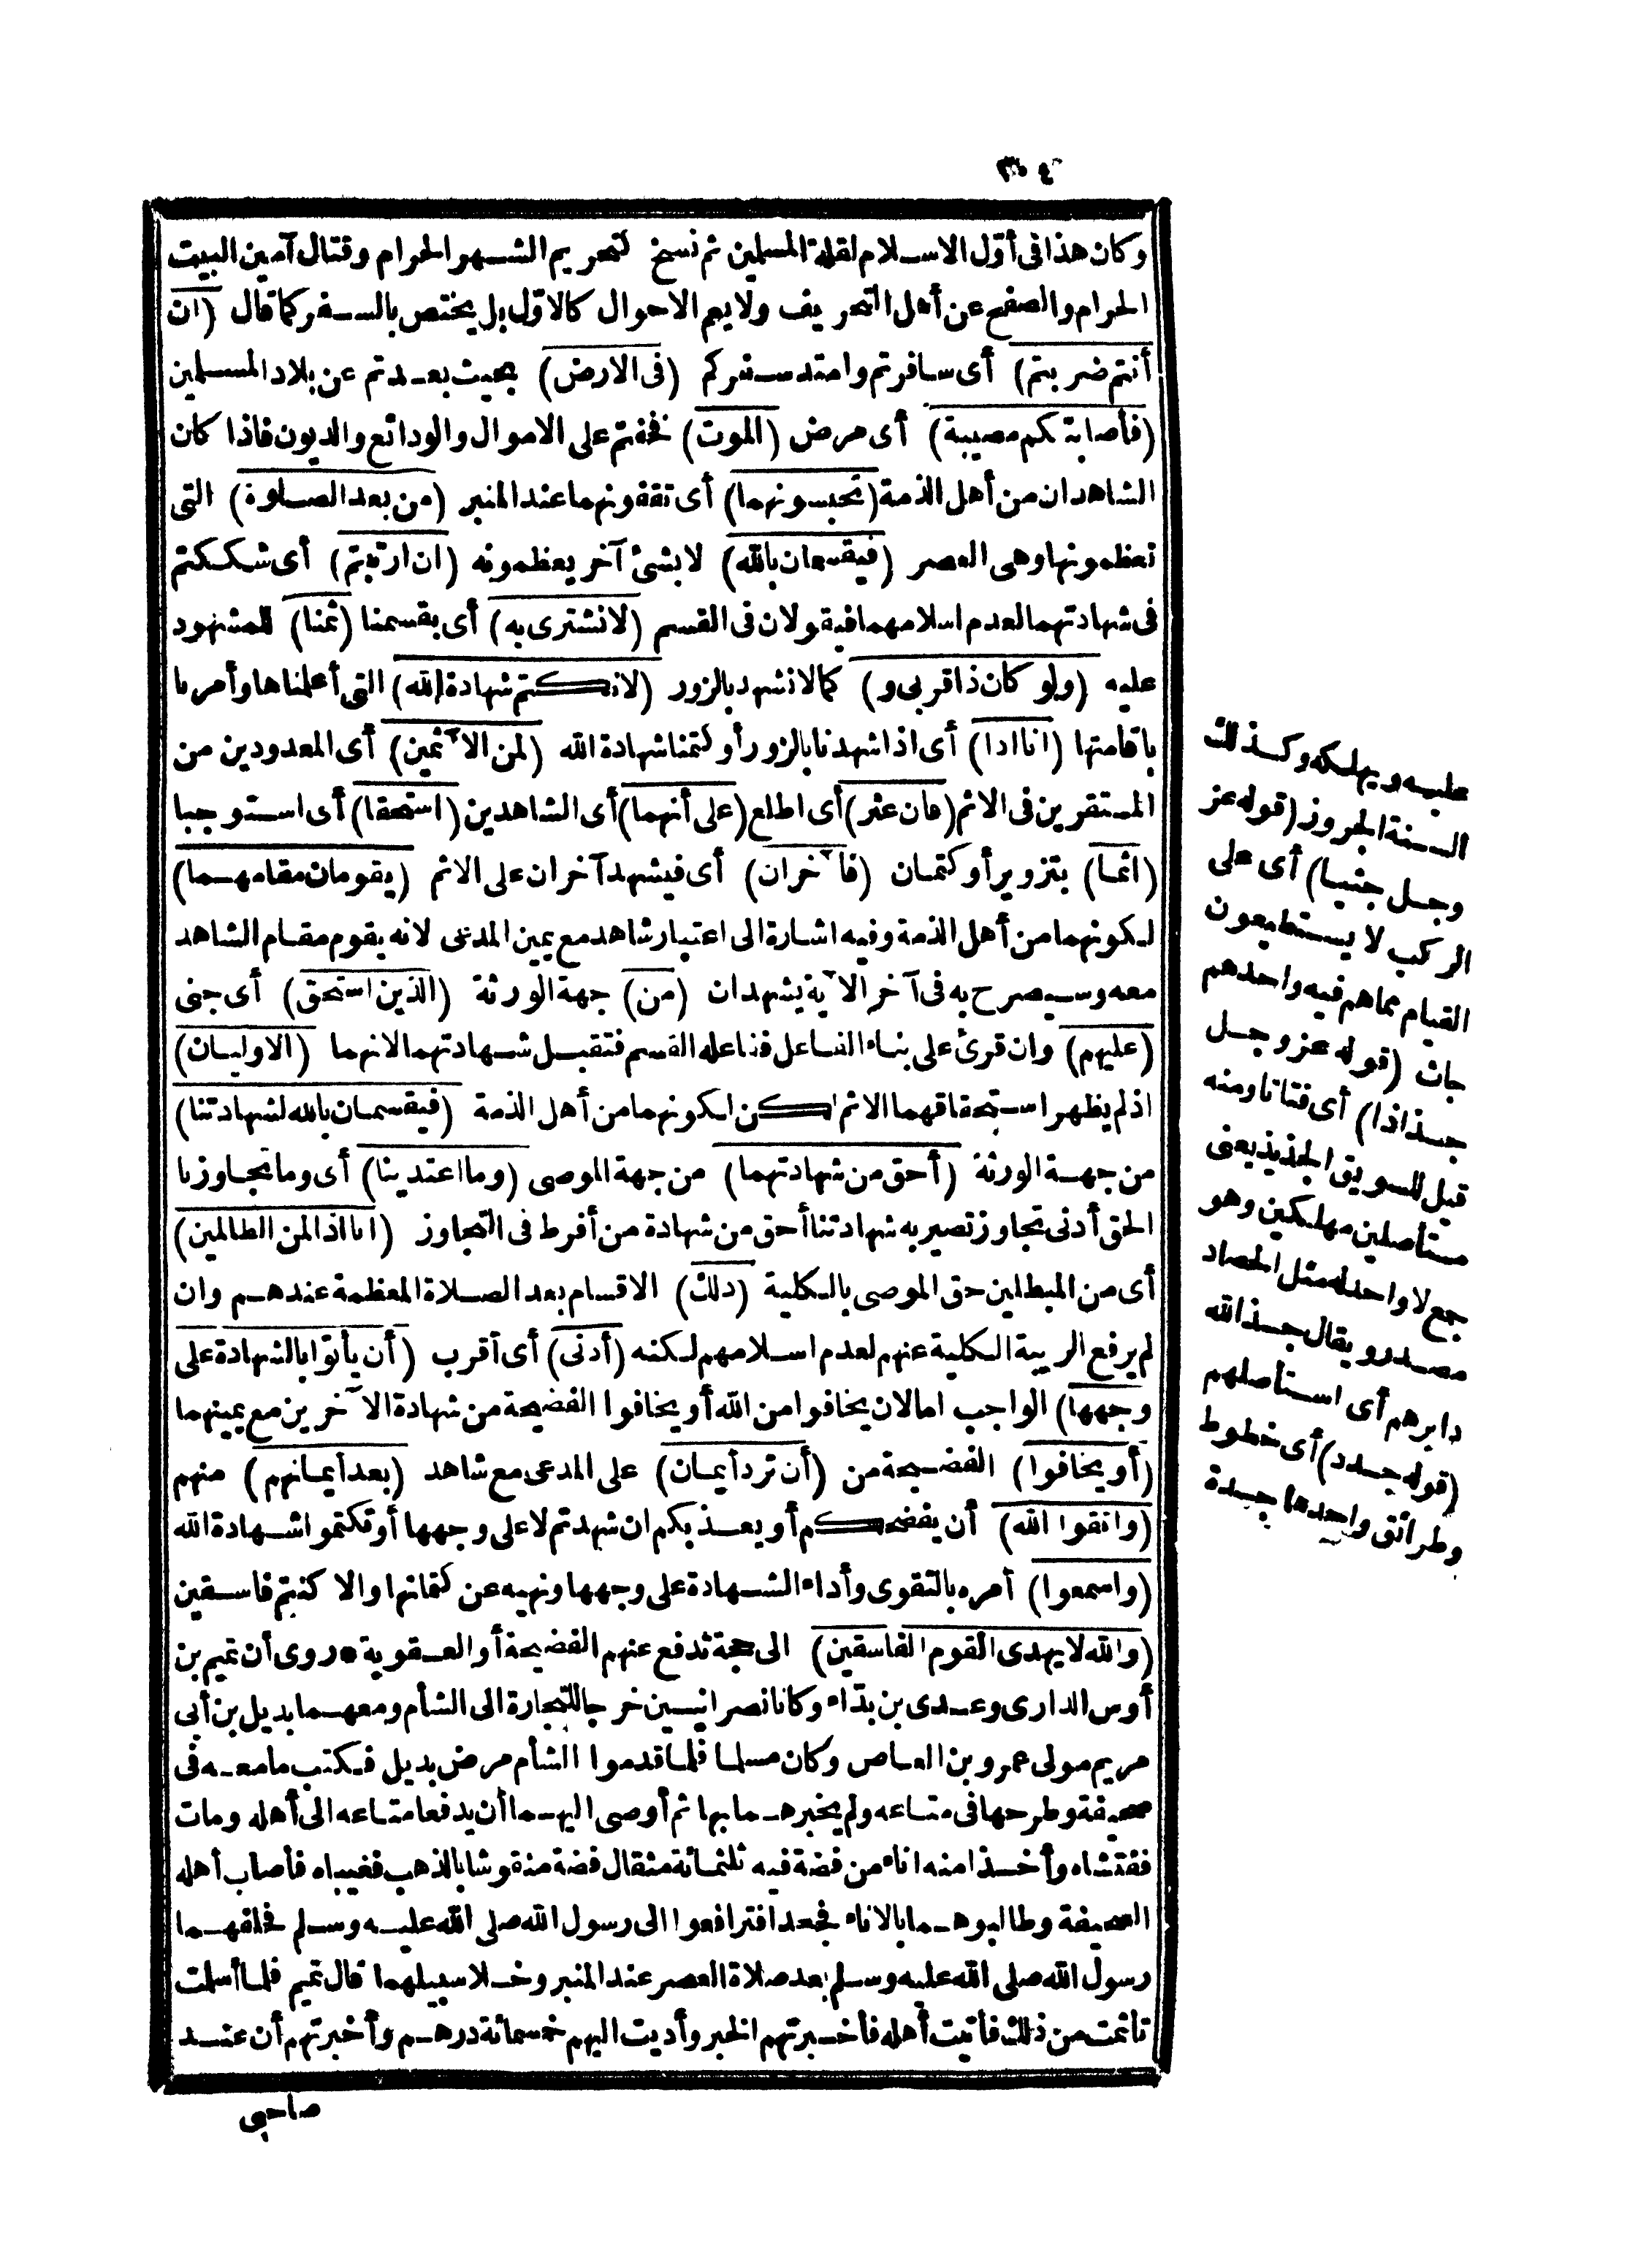 وكان هذا في أول الاسلام لقلة المسلمين ثم نسخ لتحريم الشهر الحرام وقتال آمين البيت
الحرام والصفح عن أهل التحريف ولا يعم الاحوال كالاول بل يختص بالسفر كما قال (ان
أنتم ضربتم) أى سافرتم وامتد سفركم (فى الارض) بحيث بعدتم عن بلاد المسلمين
(فأصابتكم مصيبة) أى مرض (الموت) نخفتم على الاموال والودائع والديون فاذا كان
الشاهدان من أهل الذمة (تحبسونهما) أى تقفونهما عند المنبر (من بعد الصلوة) التى
تعظمونها وهى العصر (فيقسمان بالله) لا بشئ آخر يعظمونه (ان ارتبتم) أى شككتم
فى شهادتهما لعدم اسلامهما فيقولان فى القسم (لانشترى به) أى بقسمنا (ثمنا) للمشهود
عليه (ولو كان ذا قربى و) كما لا نشهد بالزور (لا نكتم شهادة الله) التى أعلمناها وأمرنا
باقامتها (انا اذا) أى اذا شهدنا بالزور أو كتمنا شهادة الله (لمن الآثمين) أى المعدودين من
المستقرين فى الاثم (فان عثر) أى اطلع (على أنهما) أى الشاهدين (استحقا) أى استوجبا
(اثما) بتزوير أو كتمان (فآخران) أى فيشهد آخران على الاثم (يقومان مقامهما)
لكونهما من أهل الذمة وفيه اشارة الى اعتبار شاهد مع يمين المدعى لانه يقوم مقام الشاهد
معه وسيصرح به فى آخر الآية يشهدان (من) جهة الورثة (الذين استحق) أى جنى
(عليهم) وان قرئ على بناء الفاعل ففاعله القسم فتقبل شهادتهما لانهما (الاوليان)
اذ لم يظهر استحقاقهما الاثم لكن لكونهما من أهل الذمة (فيقسمان بالله لشهادتنا)
من جهة الورثة (أحق من شهادتهما) من جهة الموصى (وما اعتدينا) أى وما تجاوزنا
الحق أدنى تجاوز تصير به شهادتنا أحق من شهادة من أفرط فى التجاوز (انا اذا لمن الظالمين)
أى من المبطلين حق الموصى بالكلية (ذلك) الاقسام بعد الصلاة المعظمة عندهم وان
لم يرفع الريبة الكلية عنهم لعدم اسلامهم لكنه (أدنى) أى أقرب (أن يأتوا بالشهادة على
وجهها) الواجب اما لان يخافوا من الله أو يخافوا الفضيحة من شهادة الآخرين مع يمينهما
(أو يخافوا) الفضيحة من (أن ترد أيمان) على المدعى مع شاهد (بعد أيمانهم) منهم
(واتقوا الله) أن يفضحكم أو يعذبكم ان شهدتم لا على وجهها أو تكتموا شهادة الله
(واسمعوا) أمره بالتقوى وأداء الشهادة على وجهها ونهيه عن كتمانها والا كنتم فاسقين
(والله لا يهدى القوم الفاسقين) الى حجة تدفع عنهم الفضيحة أو العقوبة * روى أن تميم بن
أوس الدارى وعدى بن بدّاء وكانا نصرانيين خرجا للتجارة الى الشأم ومعهما بديل بن أبى
مريم مولى عمرو بن العاص وكان مسلما فلما قدموا الشأم مرض بديل فكتب ما معه فى
صحيفة وطرحها فى متاعه ولم يخبرهما بها ثم أوصى اليهما أن يدفعا متاعه الى أهله ومات
ففتشاه وأخذا منه اناء من فضة فيه ثلثمائة مثقال فضة منقوشا بالذهب فغيباه فأصاب أهله
الصحيفة وطالبوهما بالاناء فجحدا فترافعوا الى رسول الله صلى الله عليه وسلم فحلفهما
رسول الله صلى الله عليه وسلم بعد صلاة العصر عند المنبر وخلا سبيلهما قال تميم فلما أسلمت
تأثمت من ذلك فأتيت أهله فأخبرتهم الخبر وأديت اليهم خمسمائة درهم وأخبرتهم أن عند
صاحبى
عليه ويهلكه وكذلك
السنة الجروز (قوله عز
وجل جثيا) أى على
الركب لا يستطيعون
القيام مما هم فيه واحدهم
جاث (قوله عز وجل
جذاذا) أى فتاتا ومنه
قيل للسويق الجذيذ يعنى
مستأصلين مهلكين وهو
جمع لا واحد له مثل الحصاد
مصدر ويقال جذ الله
دابرهم أى استأصلهم
(قوله جدد) أى خطوط
وطرائق واحدها جدة